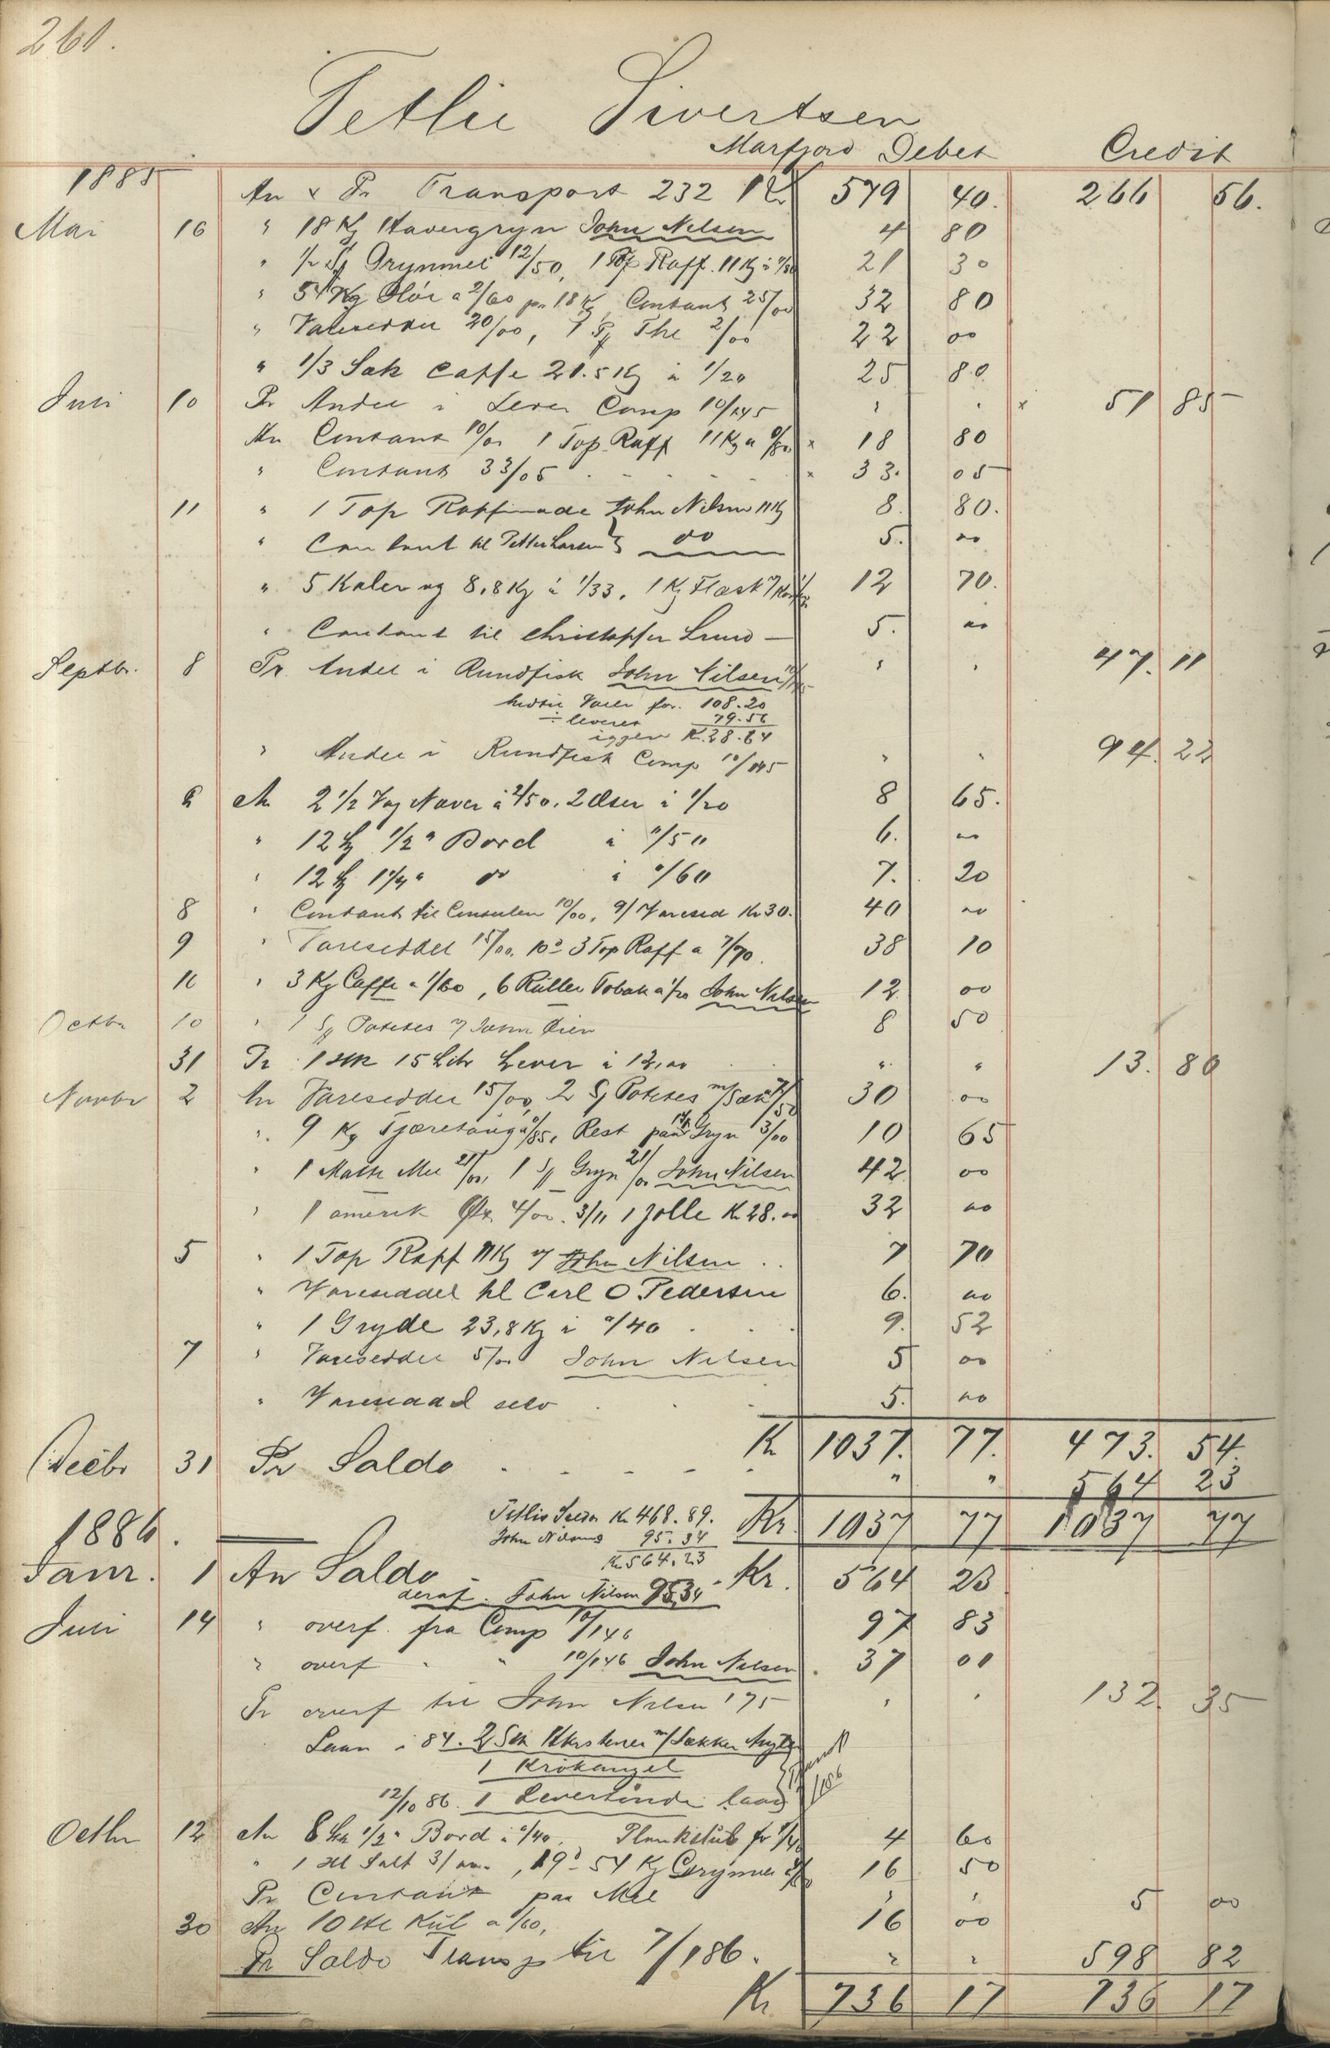 261.
Tetlie Sivertsen
Marfjord Debet Credit
1885 An & Pr Transport 232 Kr 579 40. 266 56.
Mai 16 " 18 Kg Havergryn John Nilsen 4 80
" 1/2 S Grynmel 12/50, 1 Top Raff. 11 Kg à "/80 21 30
" 54 Kg Hör a 2/60 pr 18 Kg, Contant 25/00 32 80
" Vareseddel 20/00, 1 The 2/00 22 00
" 1/3 Sæk Caffe 21.5 Kg à 1/20 25 80
Juli 10 Pr Andel i Lever Comp 10/145 " " x 51 85
An Contant 10/00 1 Top Raff 11 Kg a 0/80 x 18 80
" Contant 33/05 x 33. 05
11 " 1 Top Raffinade John Nilsen 11 Kg 8. 80.
" Contant til Petter Larsen do 5. 00
" 5 Kaler og 8,8 Kg à 1/33, 1 Kg Flæsk 12 70.
" Contant til Christopher Lund 5. 00
Septbr. 8 Pr. Andel i Rundfisk John Nilsen 10/145 " " 47. 11
hidtil Varer for 108.20
÷ leveret 79.56
igjen K. 28.64
" Andel i Rundfisk Comp 10/145 " " 94. 22
8 An 2 1/2 Vog Naver à 2/50. 2 Øser à 1/20 8 65.
" 12 1/2" Bord à "/50 6. 00
" 12 1 1/4" do à "/60 7. 20
8 " Contant til Consulen 10/00, 9/7 Varesed Kr 30. 40 00
9 " Vareseddel 15/00. 10 3 Top Raff a 7/70. 38 10
10 " 3 Kg Caffe a 1/60, 6 Ruller Tobak a 1/20 John Nilsen 12 00
Octbr 10 " 1 S Potetes v John Øien 8 50
31 Pr 1 Hk 15 Litr Lever à 12,00 " " 13. 80
Novbr 2 An Vareseddel 15/00, 2 S Potetes m/Sæk 7/50 30 00
" 9 Kg Tjæretaug a "/85, Rest paa Gryn 3/00 10 65
" 1 Matte Mel 21/00, 1 S Gryn 21/00 John Nilsen 42 00
" 1 amerik Øx 4/00. 3/11 1 Jolle Kr 28.00 32 00
5 " 1 Top Raff 11 Kg v John Nilsen 7 70
" Vareseddel til Carl O Pedersen 6. 00
" 1 Gryde 23,8 Kg à "/40 9. 52
7 " Vareseddel 5/00 John Nilsen 5 00
" Vareseddel selv 5. 00
K 1037. 77. 473. 54.
Decbr 31 Pr Saldo " " 564 23
Tetlis Saldo Kr 468.89. Kr 1037 77 1037 77
John Nilsens 95.34
Kr 564.23
1886.
Janr. 1 An Saldo Kr. 564 23
deraf. John Nilsen 95,34
Juli 14 " overf. fra Comp 10/146 97 83
" overf " " 10/146 John Nilsen 37 01
Pr overf til John Nilsen 175 " " 132. 35
Laan i 84. 2 Sæk m/Sække
1 Krökangel
12/10 86. 1 Levertönde laan
Octbr 12 An 8 1/2" Bord à "/40, Plankstub for 1/40 4 60
" 1 Hl Salt 3/00, 19 54 Kg Grynmel 16 50
Pr Contant paa Mel " " 5 00
30 An 10 Hl Kul a 1/60, 16 00
Pr Saldo Transp til 7/186. " " 598 82
Kr 736 17 736 17